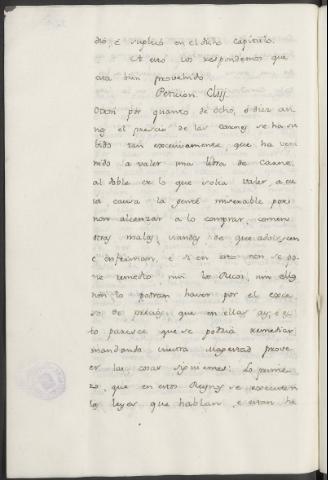 dió, è suplicó en el dicho capitulo.
A esto vos respondemos que
esta bien provehido.
Peticion Cliij.
Otrosi por quanto de ocho, ò diez años
el precio de las carnes se ha su
bido tan excesivamente, que ha veni
nido a valer una libra de Carne
al doble de lo que solia valer, a cu
ia causa la gente miserable por
non alcanzar a lo comprar, comen
otras malas viandas de que adolescen
è enferman, è si en esto non se po
ne remedio nin los Ricos, nin
non lo podran haver por el exce
so de precios, que en ellas ay, è es
to paresce que se podria remediar
mandando vuestra Magestad prove
er las cosas siguientes: Lo prime
ro, que en estos Reynos se executen
las leyes que hablan, e estan he